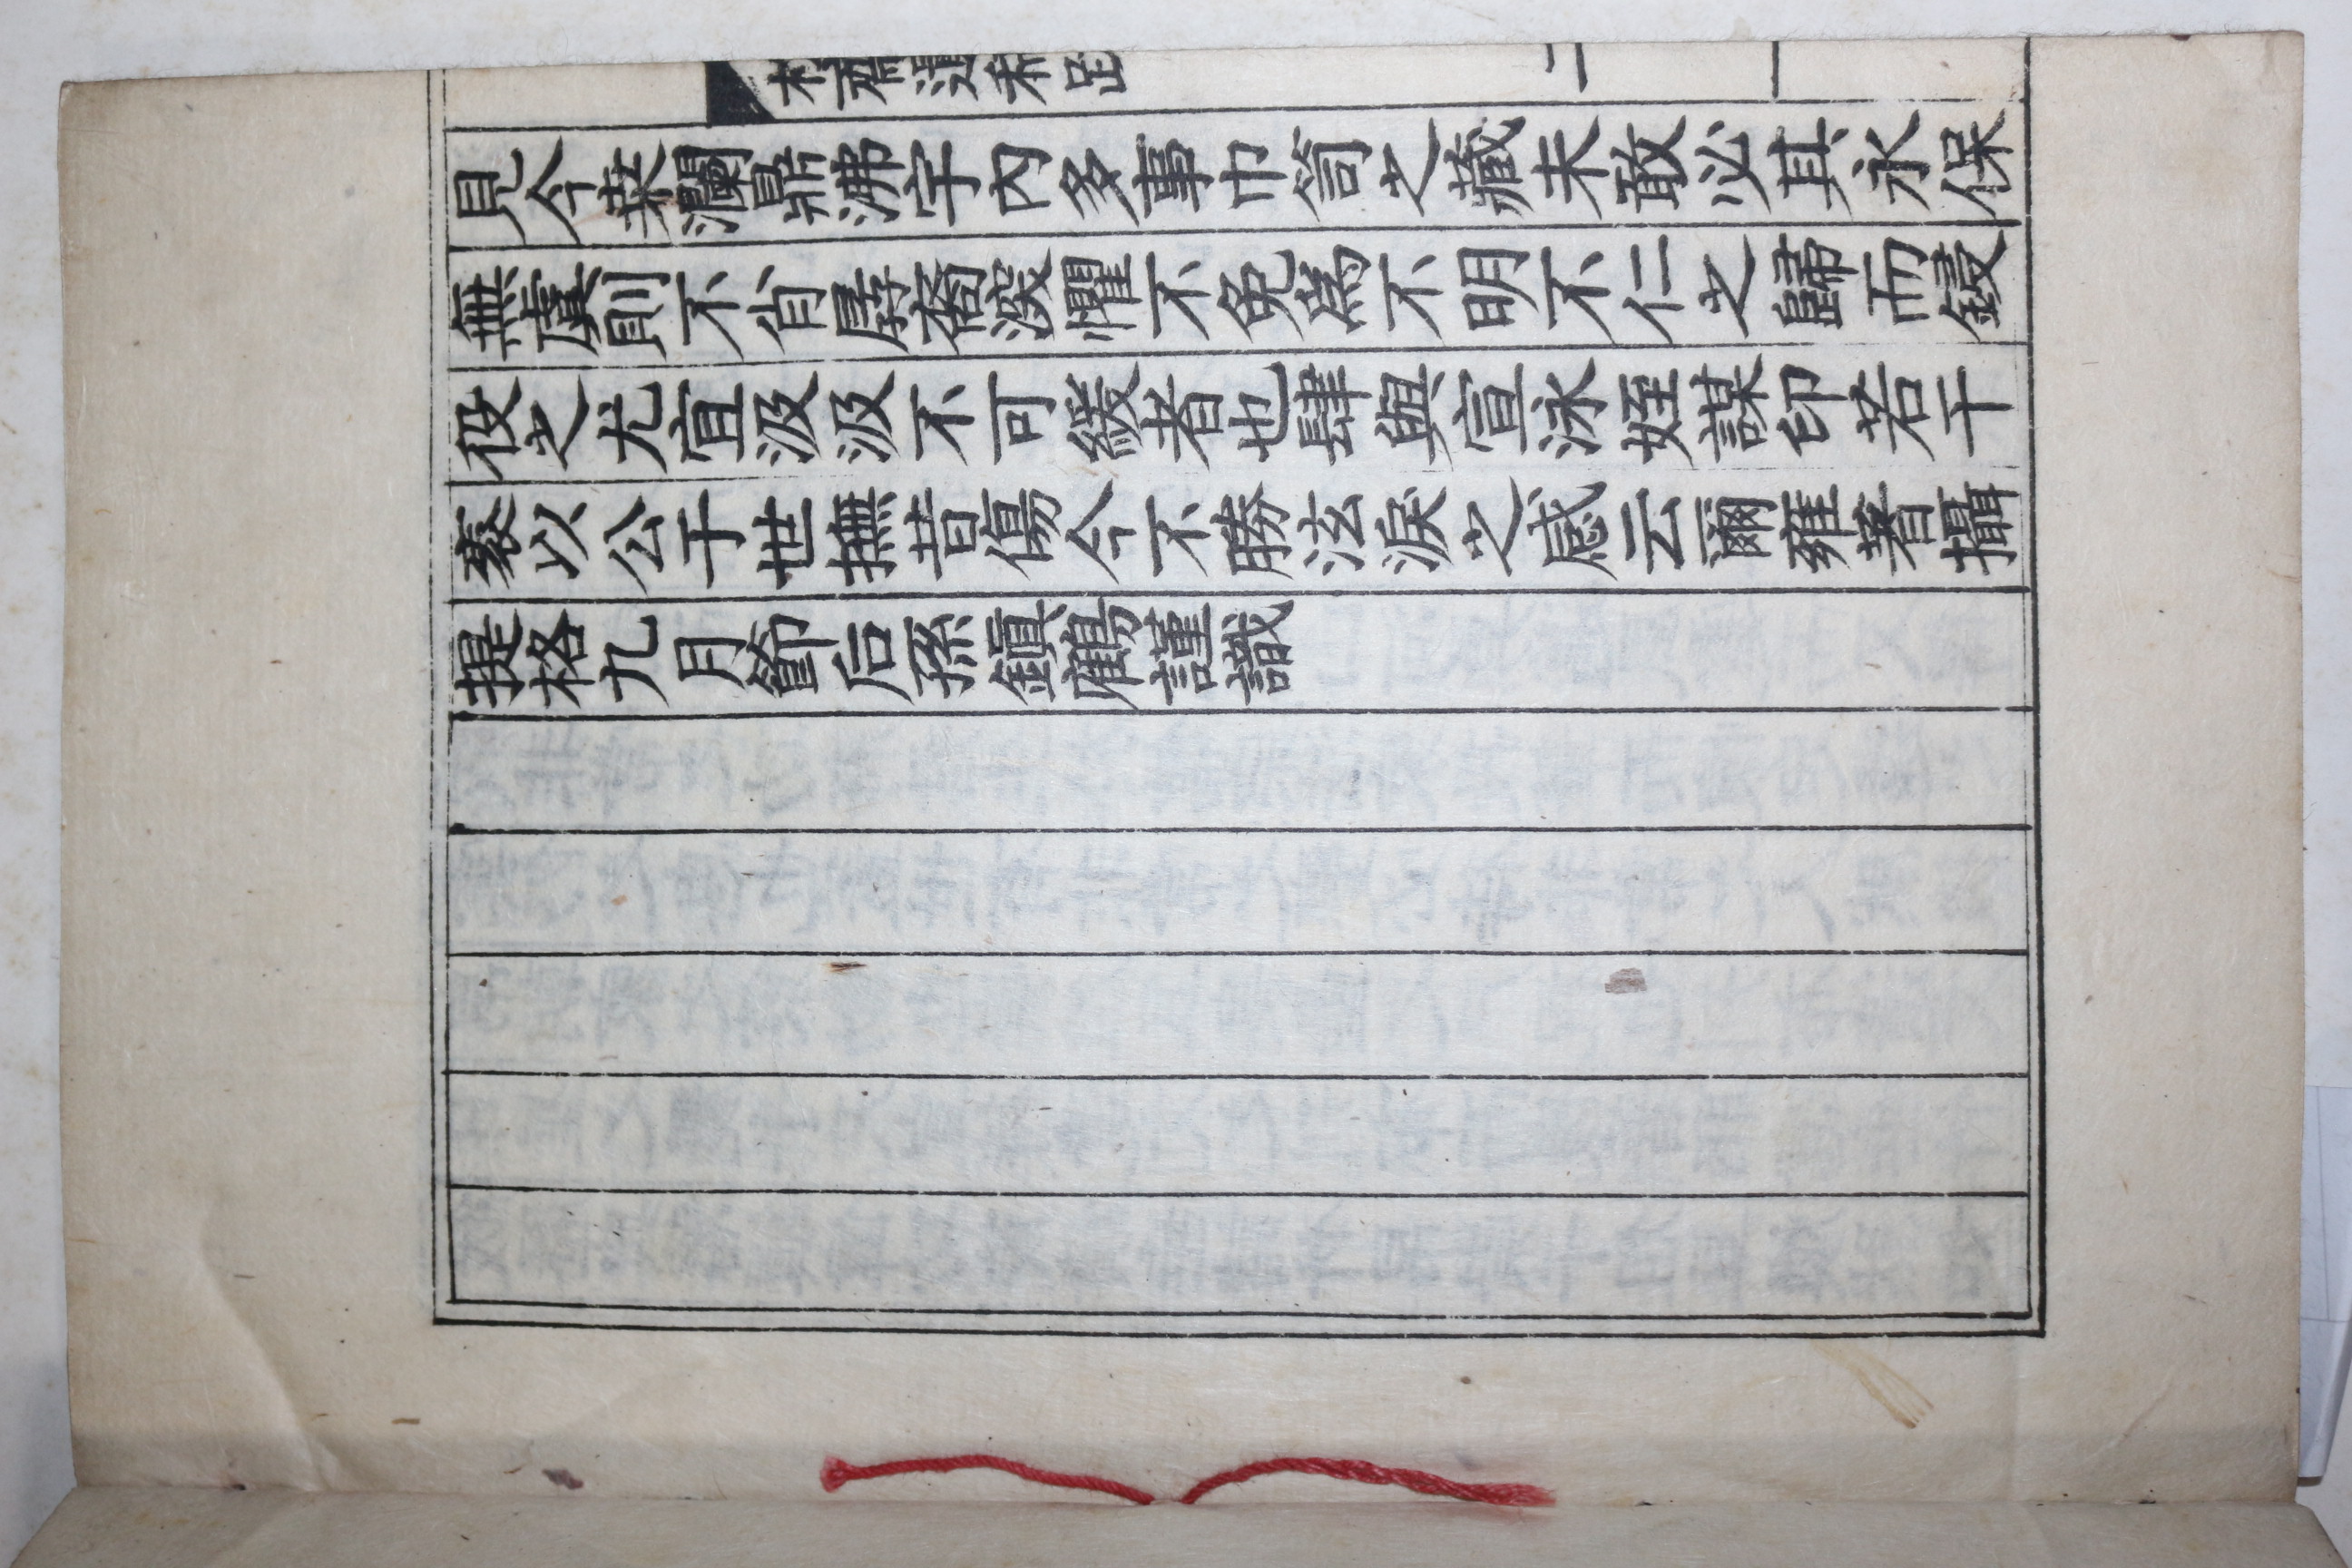 見今桒瀾鼎沸宇內多事巾笥之藏未敢必其永保
無虞則不肖孱裔滋懼不免爲不明不仁之歸而鋟
役之尤宜汲汲不可緩者也肆與宣泳姪謀印若干
袠以公于世撫昔傷今不勝泫淚之感云爾雍著攝
提格九月節后孫鎭鶴謹識